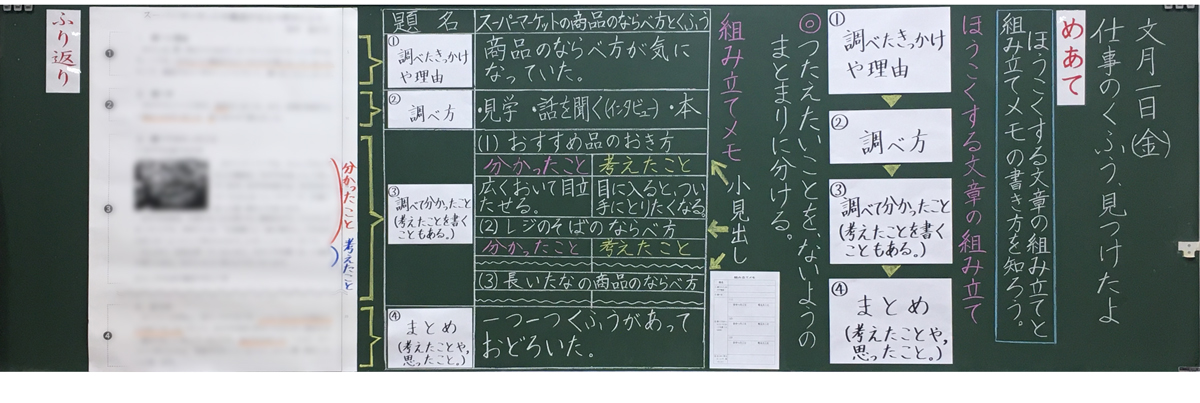 文月一日(金)
仕事のくふう、見つけたよ
めあて
ほうこくする文章の組み立てと
組み立てメモの書き方を知ろう。
ほうこくする文章の組み立て
①
調べたきっかけ
や理由
②
調べ方
③
調べて分かったこと
(考えたことを書く
こともある。)
④
まとめ
(考えたことや、
思ったこと。)
◎つたえたいことを、ないようの
まとまりに分ける。
組み立てメモ
小見出し
題名
スーパーマーケットの商品のならべ方とくふう
①
調べたきっかけ
や理由
商品のならべ方が気に
なっていた。
②
調べ方
・見学 ・話を聞く(インタビュー) ・本
③
調べて分かったこと
(考えたことを書く
こともある。)
(1) おすすめ品のおき方
分かったこと 考えたこと
広くおいて目立
たせる。
目に入ると、つい
手にとりたくなる。
(2) レジのそばのならべ方
分かったこと 考えたこと
(3) 長いたなの商品のならべ方
④
まとめ
(考えたことや、
思ったこと。)
一つ一つくふうがあって
おどろいた。
①
②
③
④
分かったこと
考えたこと
ふり返り